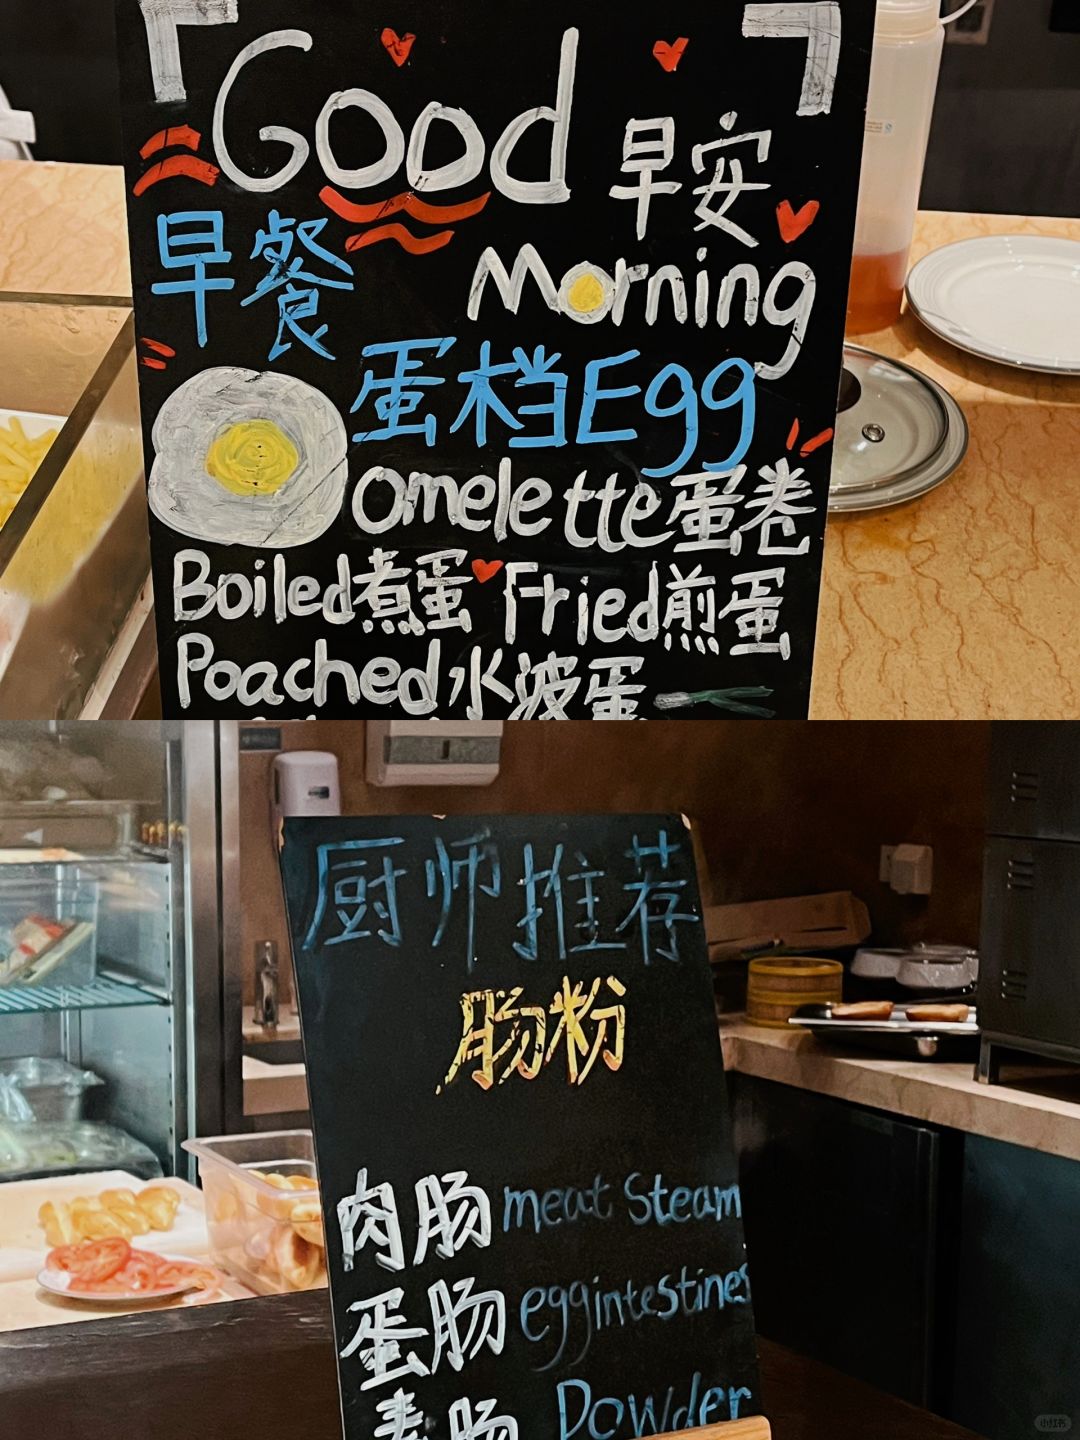 Good 早安
早餐 Morning
蛋档 Egg
Omelette 蛋卷
Boiled 煮蛋 Fried 煎蛋
Poached 水波蛋
厨师推荐
肠粉
肉肠 meat Steam
蛋肠 egg intestines
素肠 Powder
小红书